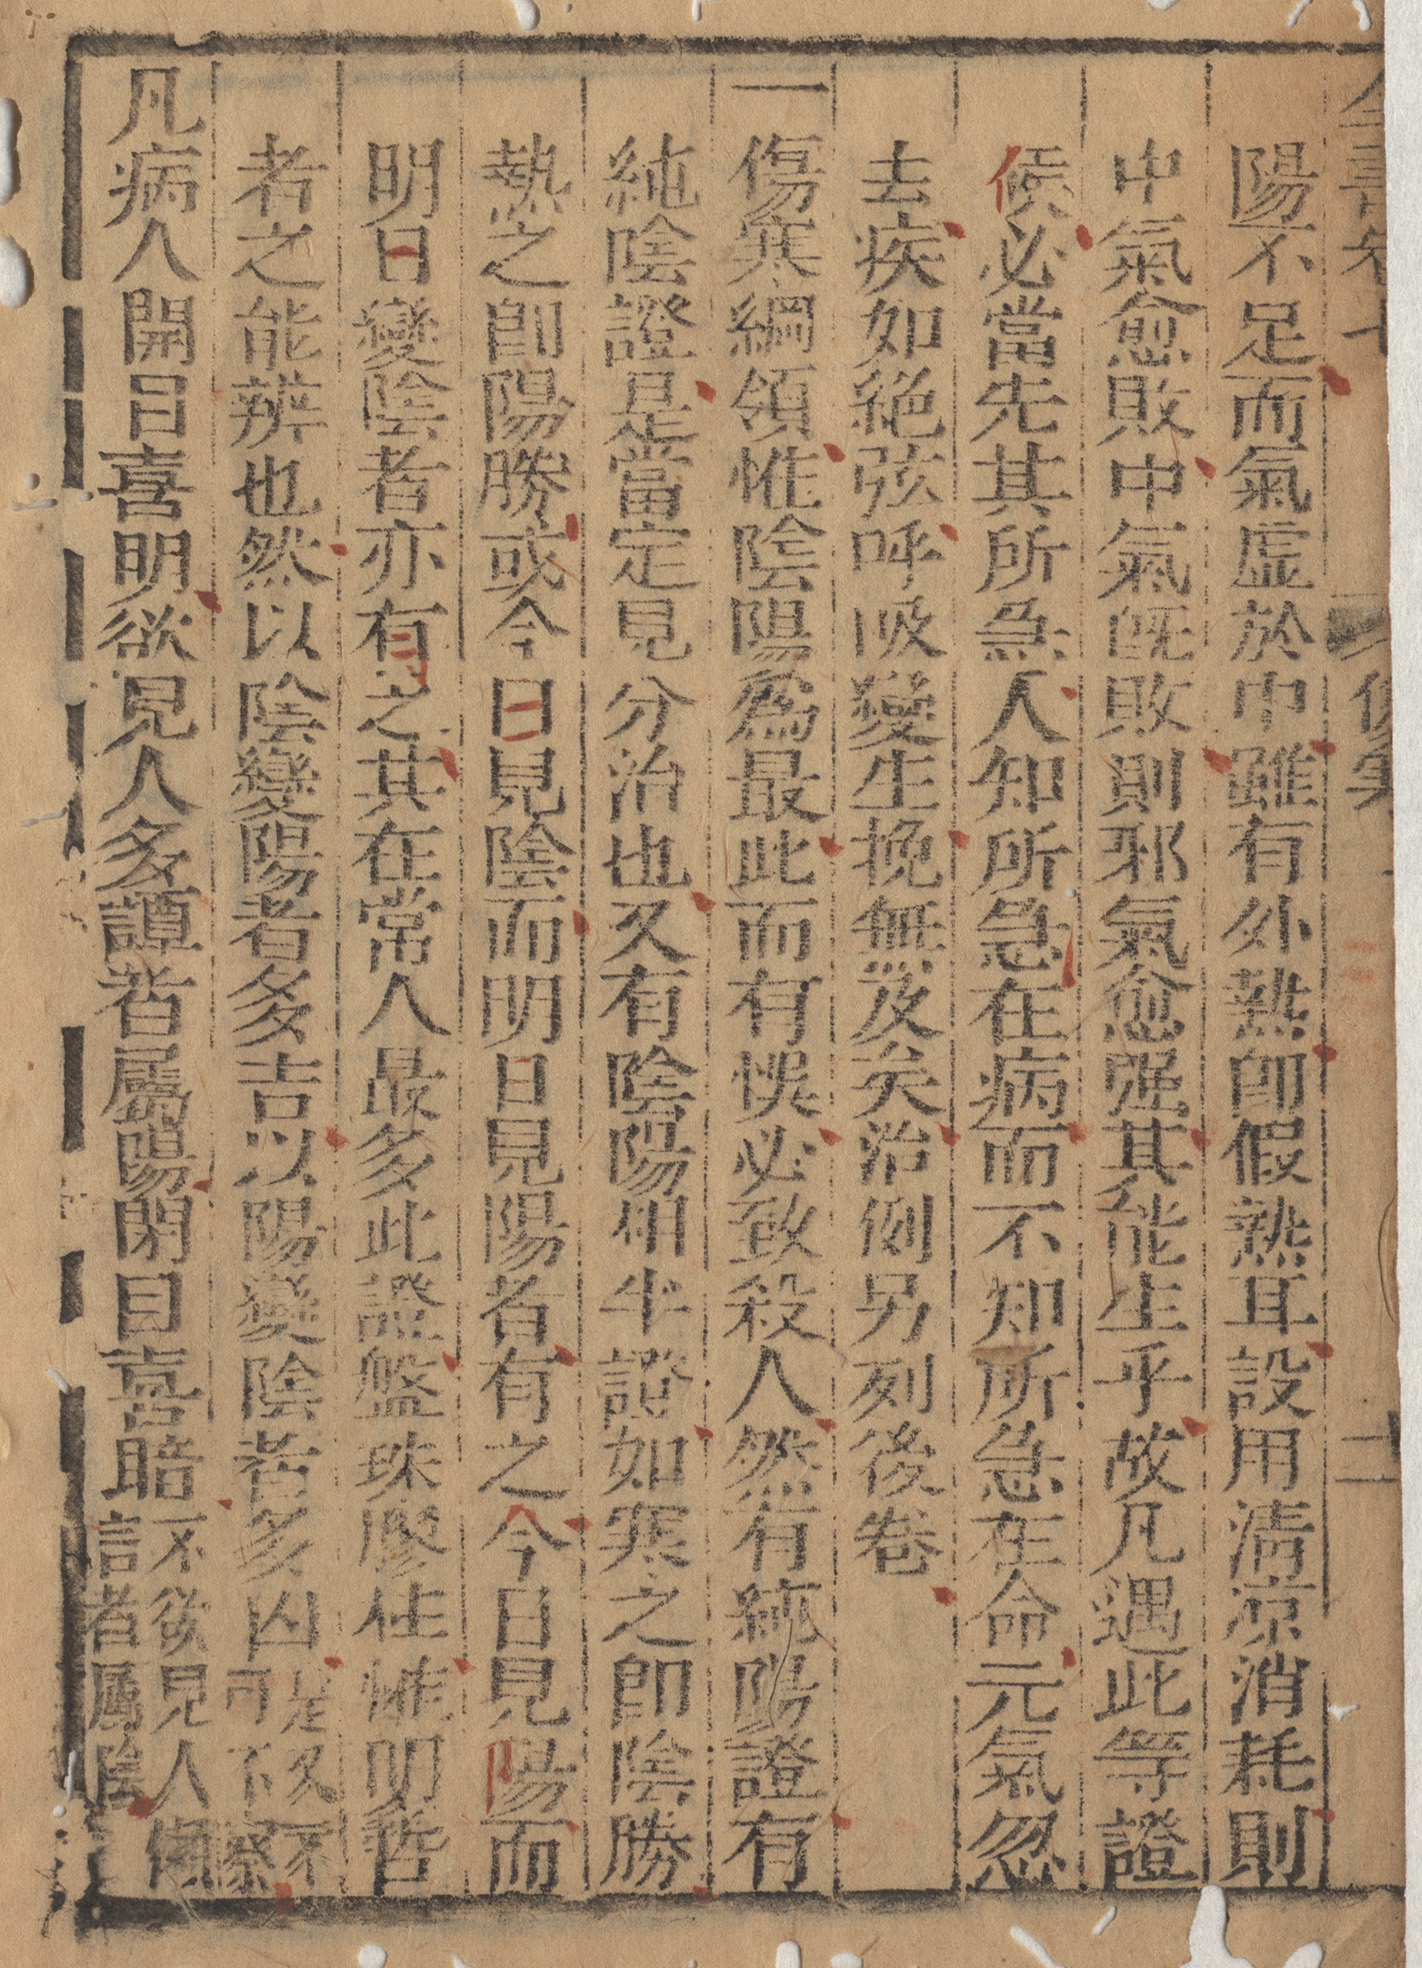 陽不足而氣虛於中雖有外熱卽假熱耳設用淸凉消耗則
中氣愈敗中氣旣敗則邪氣愈强其能生乎故凡遇此等證
候必當先其所急人知所急在病而不知所急在命元氣忽
去疾如絕弦呼吸變生挽無及矣治例另列後卷
一傷寒綱領惟陰陽爲最此而有悞必致殺人然有純陽證有
純陰證是當定見分治也又有陰陽相半證如寒之卽陰勝
熱之卽陽勝或今日見陰而明日見陽者有之今日見陽而
明日變陰者亦有之其在常人最多此證盤珠膠柱惟明哲
者之能辨也然以陰變陽者多吉以陽變陰者多凶是又不
可不察
凡病人開目喜明欲見人多譚者屬陽閉目喜暗不欲見人懶
言者屬陰